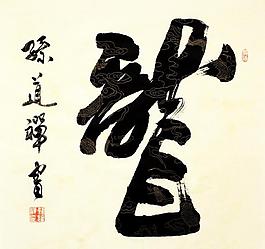 龍
孫道禪書